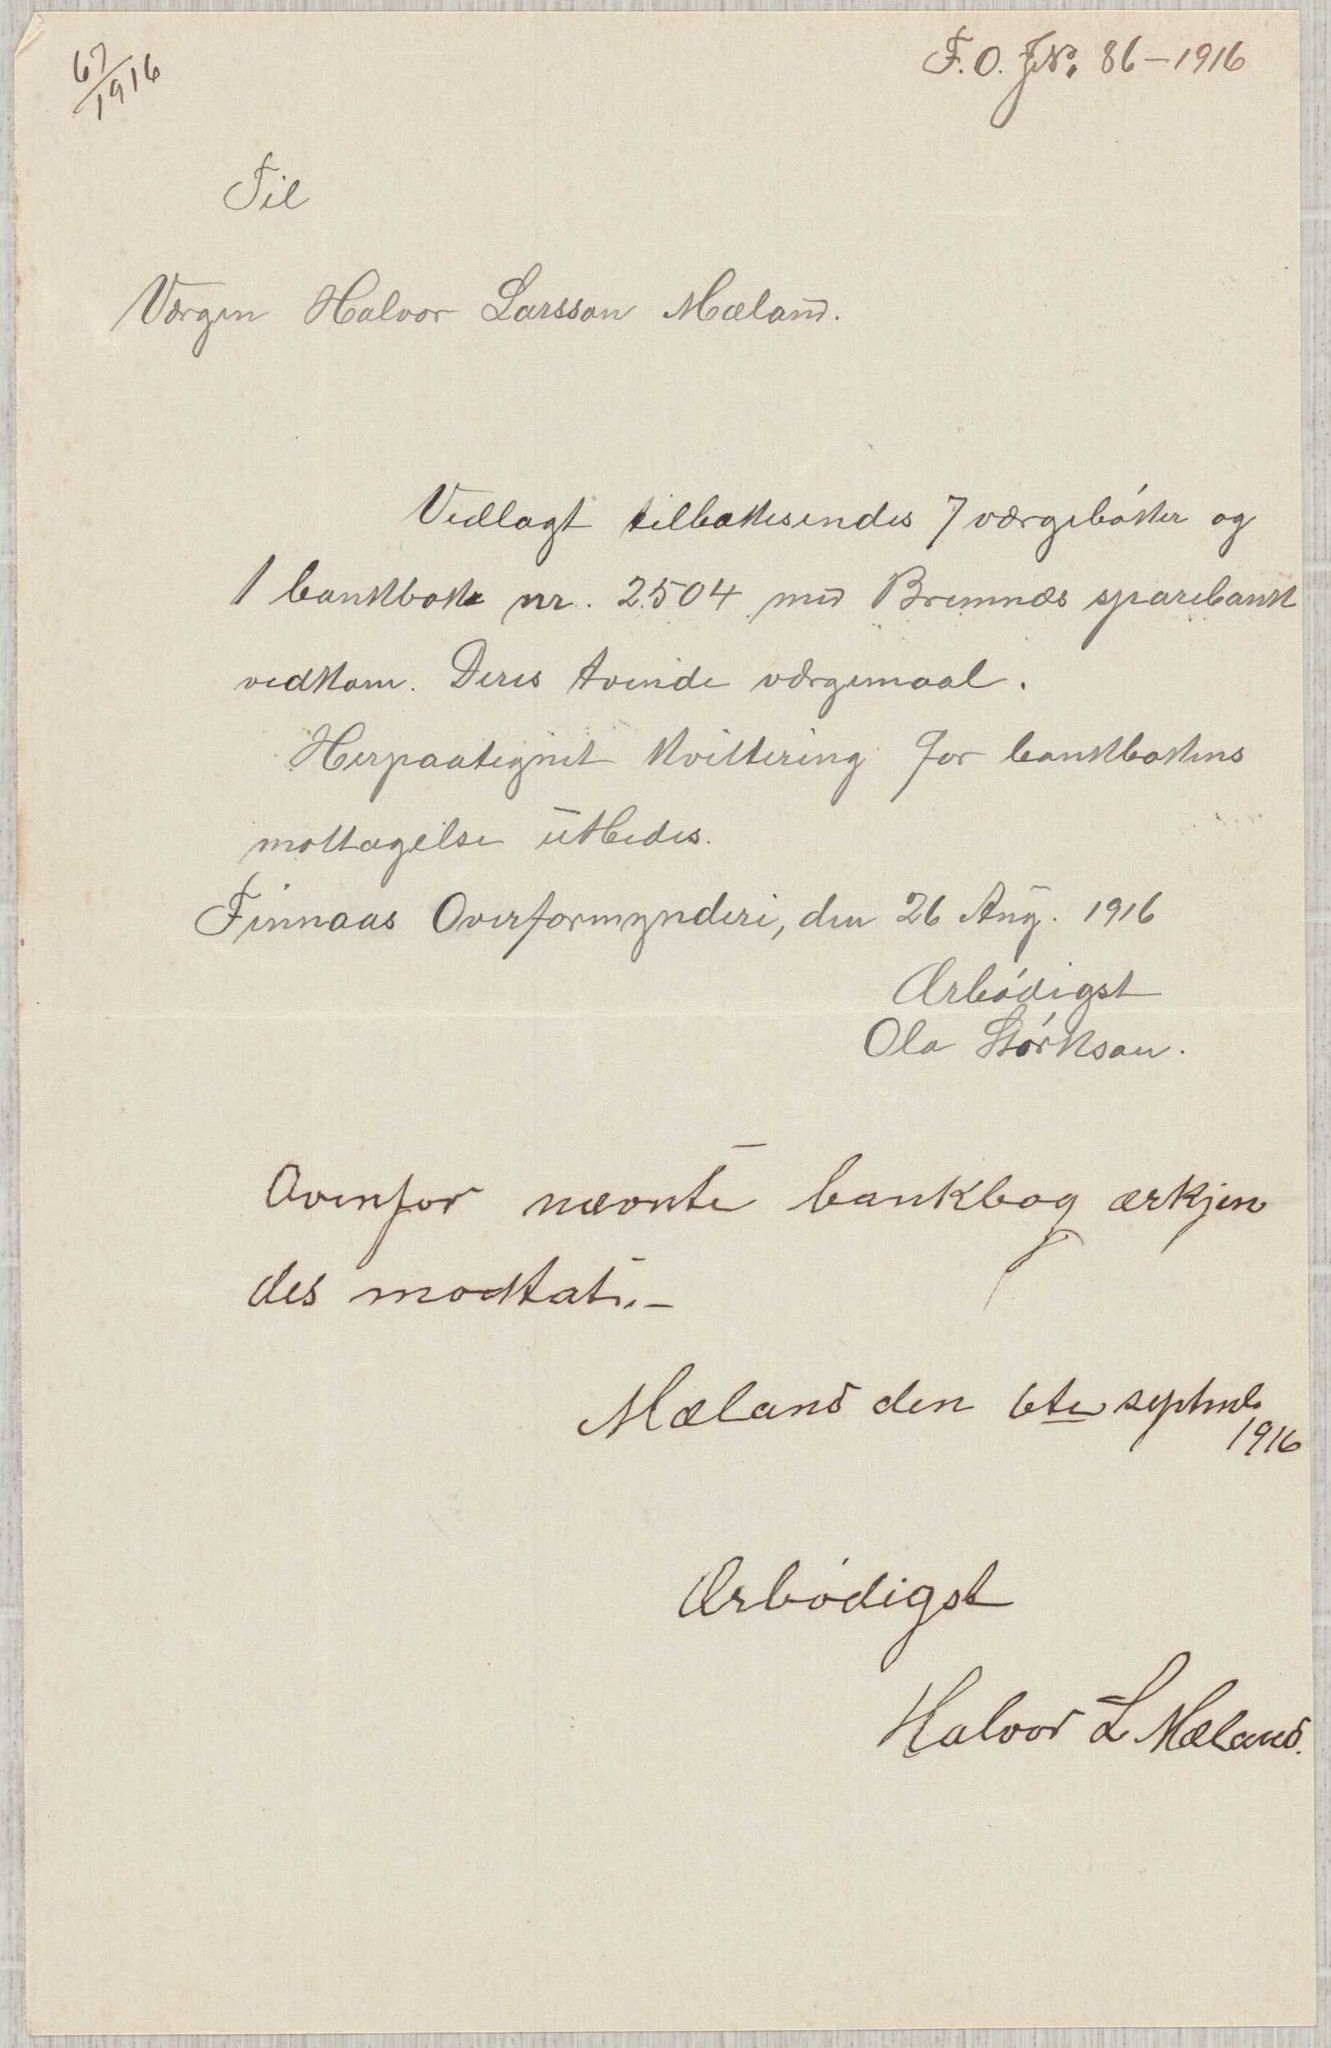 67/1916
F. O. JNo. 86 – 1916
Til
Værgen Halvor Larsson Mæland.
Vedlagt tilbakesendes 7 værgebøker og
1 bankbok nr. 2504 med Bremnæs sparebank
vedkom. Deres havende værgemaal.
Herpaategnet kvittering for bankbokens
mottagelse utbedes.
Finnaas Overformynderi, den 26 Aug. 1916
Ærbødigst
Ola Størkson.
Ovenfor nævnte bankbog ærkjen
des modtat.–
Mæland den 6te septmb
1916
Ærbødigst
Halvor L Mæland.